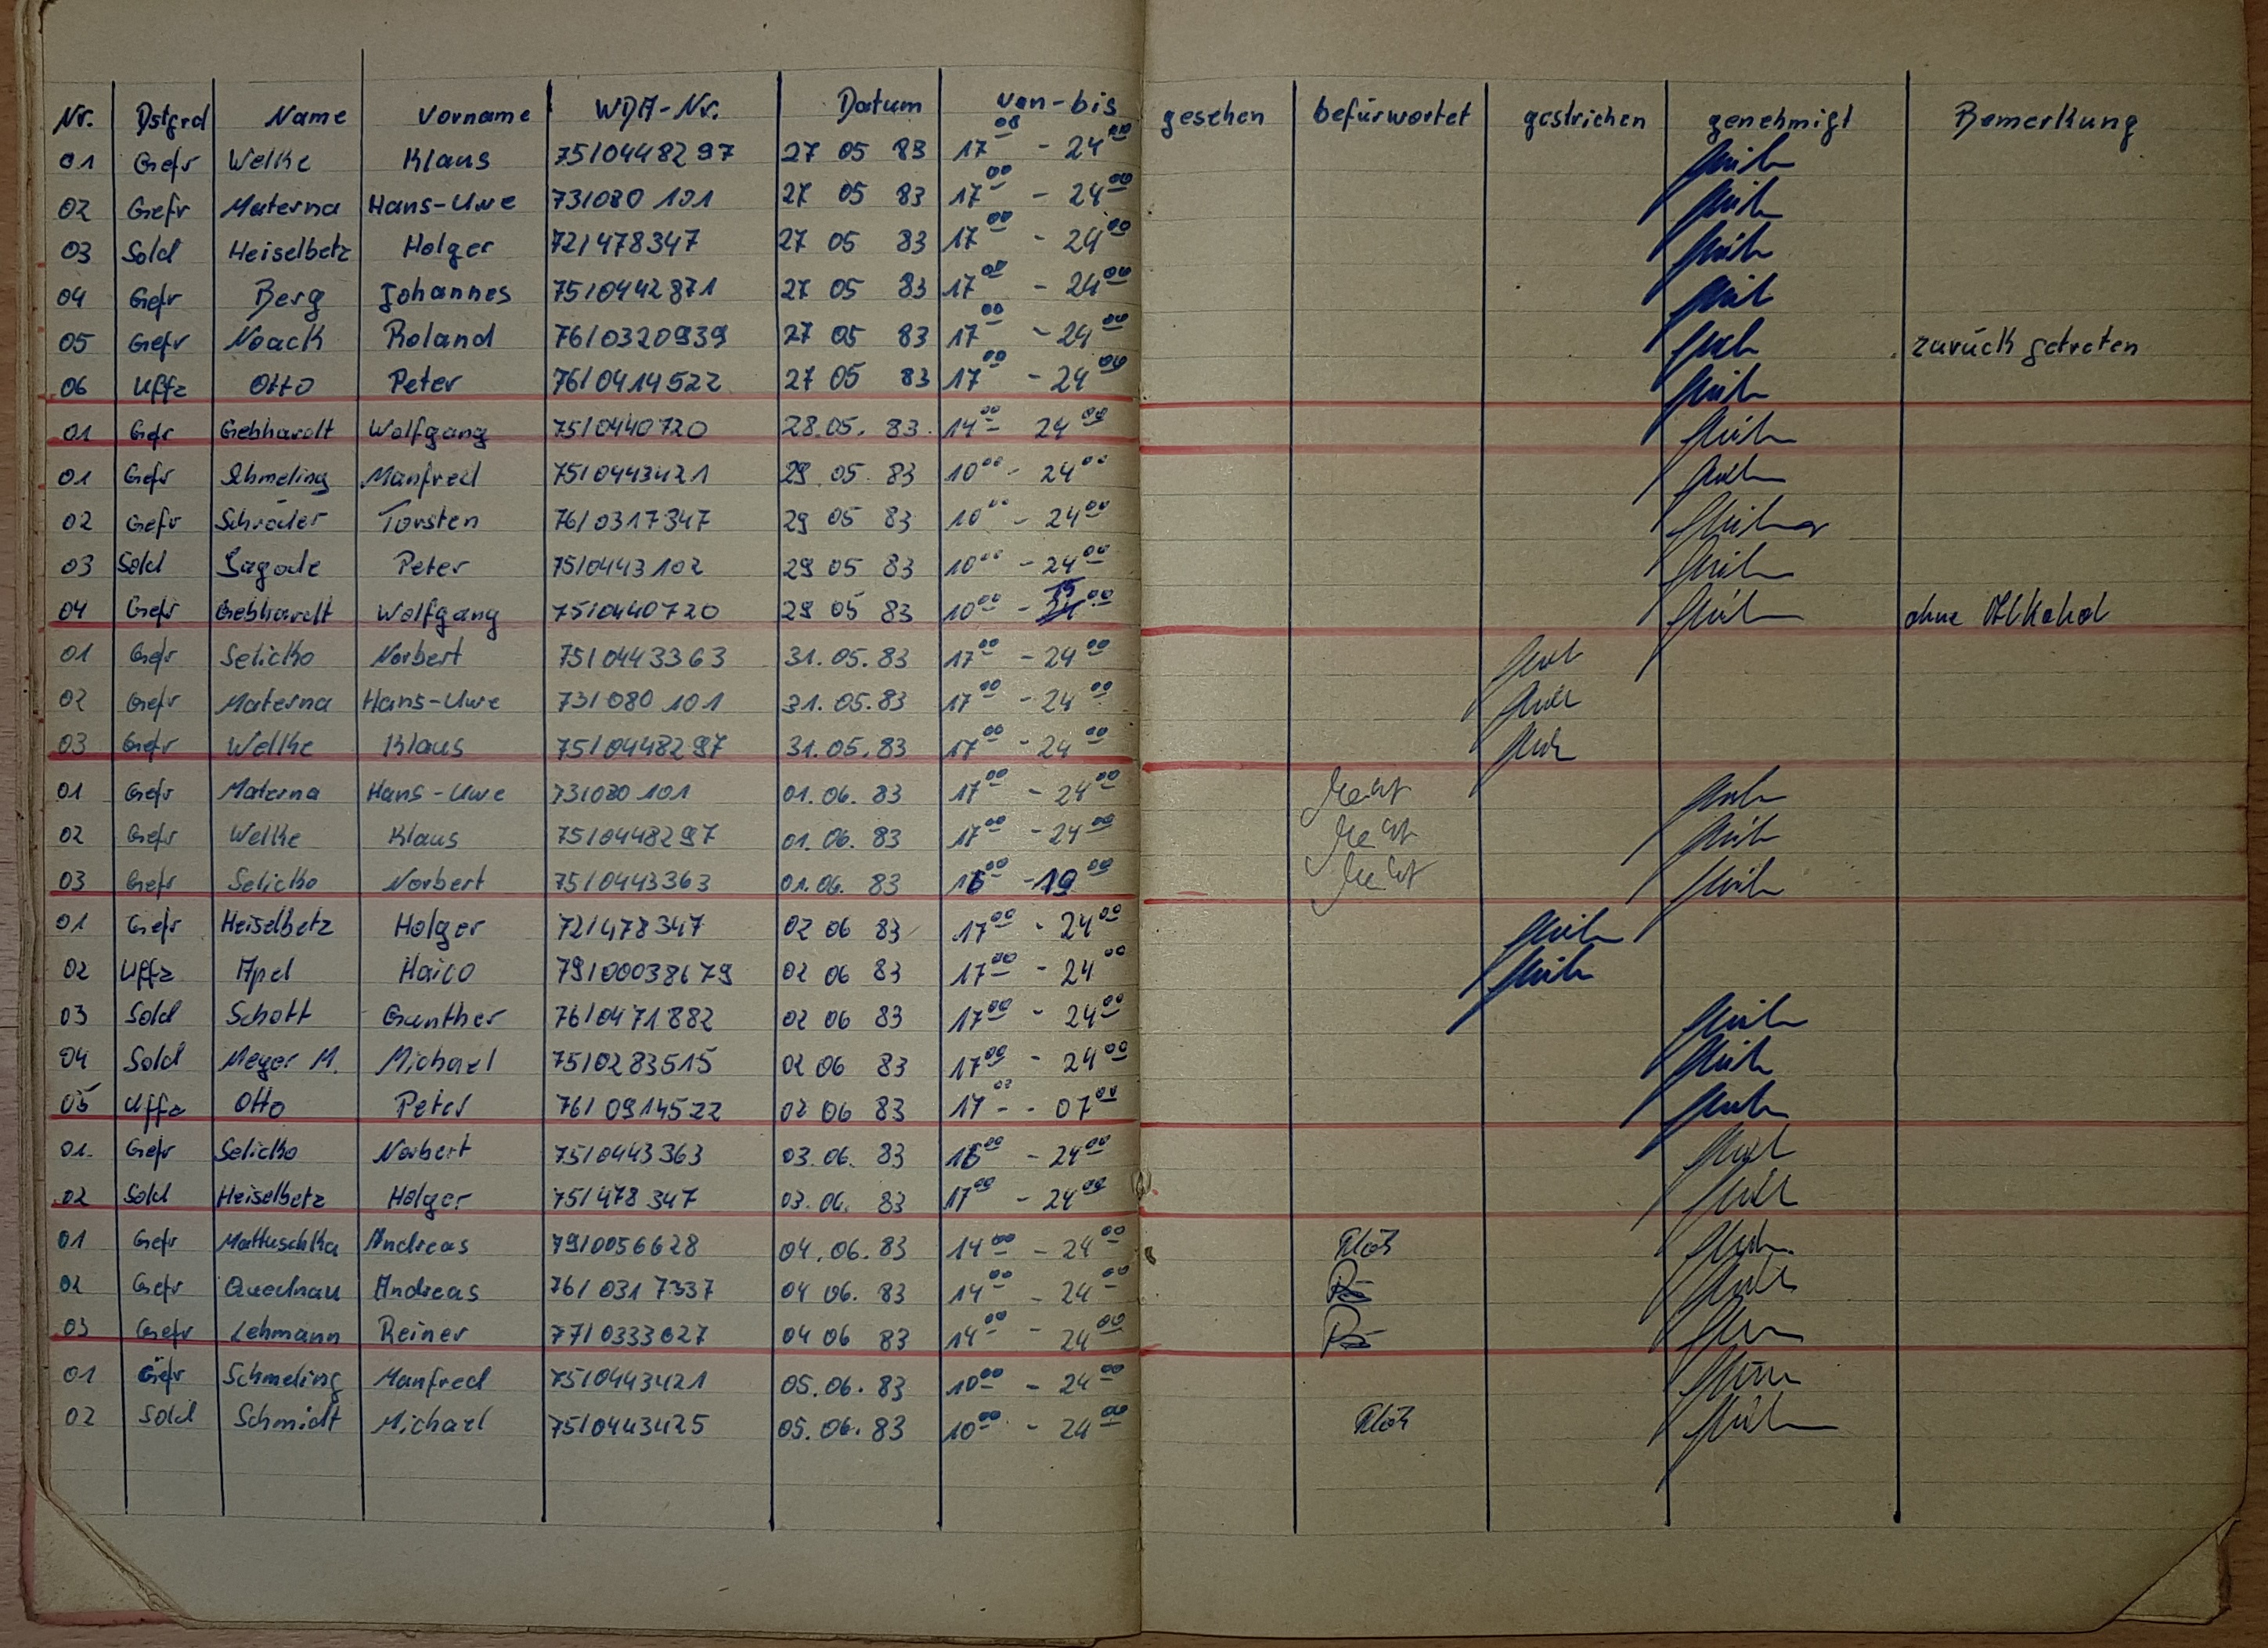 Nr. Dstgrd Name Vorname WDA-Nr. Datum von-bis gesehen befürwortet gestrichen genehmigt Bemerkung
01 Gefr Welke Klaus 75/0448297 27 05 83 17 00 - 24 00
02 Gefr Materna Hans-Uwe 73/080 101 27 05 83 17 00 - 24 00
03 Sold Heiselbetz Holger 72/478347 27 05 83 17 00 - 24 00
04 Gefr Berg Johannes 75/0442871 27 05 83 17 00 - 24 00
05 Gefr Noack Roland 76/0320939 27 05 83 17 00 - 24 00 zurück getreten
06 Uffz Otto Peter 76/0414522 27 05 83 17 00 - 24 00
01 Gefr Gebhardt Wolfgang 75/0440720 28.05. 83. 14 00 24 00
01 Gefr Manfred 75/0443421 29. 05. 83 10 00 - 24 00
02 Gefr Schröder Torsten 76/0317347 29 05 83 10 00 - 24 00
03 Sold Peter 75/0443102 29 05 83 10 00 - 24 00
04 Gefr Gebhardt Wolfgang 75/0440720 29 05 83 10 00 - 00 ohne Alkohol
01 Gefr Selicko Norbert 75/0443363 31.05.83 17 00 - 24 00
02 Gefr Materna Hans-Uwe 73/080 101 31.05.83 17 00 - 24 00
03 Gefr Welke Klaus 75/0448297 31.05.83 17 00 - 24 00
01 Gefr Materna Hans-Uwe 73/080 101 01.06.83 17 00 - 24 00
02 Gefr Welke Klaus 75/0448297 01.06.83 17 00 - 24 00
03 Gefr Selicko Norbert 75/0443363 01.06.83 16 00 - 19 00
01 Gefr Heiselbetz Holger 72/478347 02 06 83 17 00 - 24 00
02 Uffz Apel Haico 79/00038679 02 06 83 17 00 - 24 00
03 Sold Schott Gunther 76/0471882 02 06 83 17 00 - 24 00
04 Sold Meyer M. Michael 75/0283515 02 06 83 17 00 - 24 00
05 Uffz Otto Peter 76/0914522 02 06 83 17 00 - 07 00
01. Gefr Selicko Norbert 75/0443363 03.06. 83 16 00 - 24 00
02 Sold Heiselbetz Holger 75/478347 03.06. 83 17 00 - 24 00
01 Gefr Mattuschka Andreas 79/0056628 04.06.83 14 00 - 24 00
02 Gefr Quednau Andreas 76/0317337 04 06. 83 14 00 - 24 00
03 Gefr Lehmann Reiner 77/0333027 04 06 83 14 00 - 24 00
01 Gefr Schmeling Manfred 75/0443421 05.06.83 10 00 - 24 00
02 Sold Schmidt Michael 75/0443425 05.06.83 10 00 - 24 00